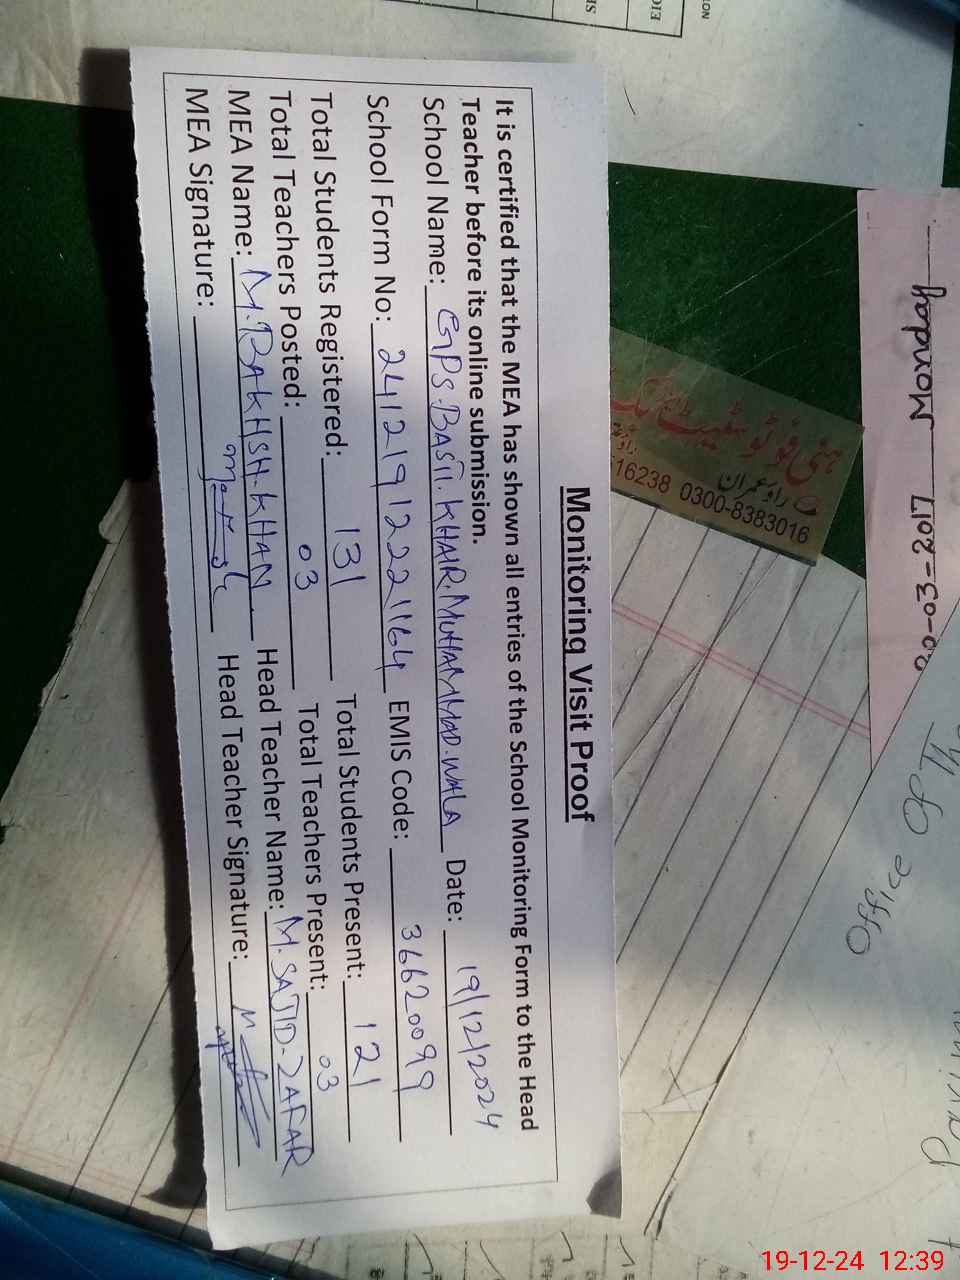 Monitoring Visit Proof
It is certified that the MEA has shown all entries of the School Monitoring Form to the Head
Teacher before its online submission.
School Name: GPS.BASTI.KHAIR.MUHAMMAD.WALA Date: 19/12/2024
School Form No: 24121912221164 EMIS Code: 36620099
Total Students Registered: 131 Total Students Present: 121
Total Teachers Posted: 03 Total Teachers Present: 03
MEA Name: M.BAKHSH.KHAN Head Teacher Name: M.SAJID-ZAFAR
MEA Signature: Head Teacher Signature:
ہنی فوٹو سٹیٹ
راؤ عمران
16238 0300-8383016
-03-2017 Monday
office
19-12-24 12:39